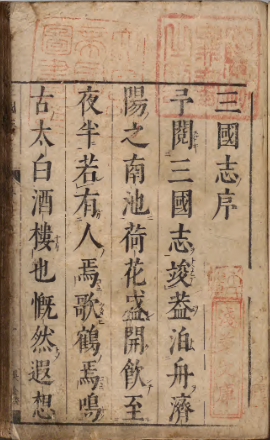 三國志序
予閱三國志竣葢泊舟濟
陽之南池荷花盛開飲至
夜半若有人焉歌鶴焉鳴
古太白酒樓也慨然遐想